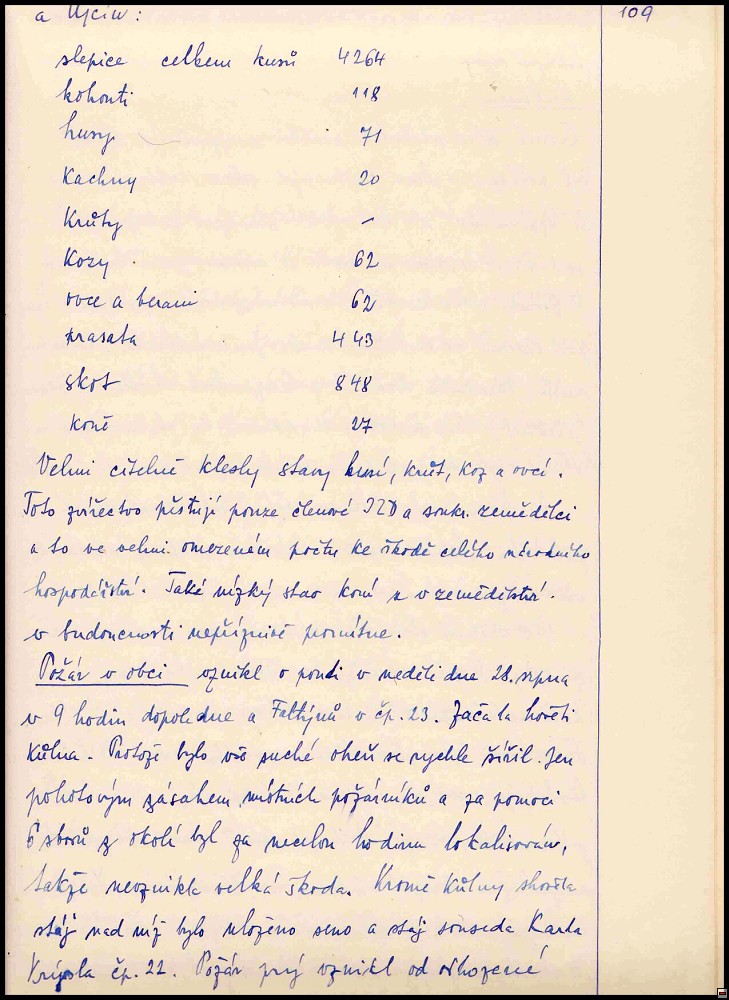 a Ujčín: 109
slepice celkem kusů 4264
kohouti 118
husy 71
Kachny 20
Krůty –
Kozy 62
ovce a berani 62
prasata 443
skot 848
koně 27
Velmi citelně klesly stavy husí, krůt, koz a ovcí.
Toto zvířectvo pěstují pouze členové JZD a soukr. zemědělci
a to ve velmi omezeném počtu ke škodě celého národního
hospodářství. Také nízký stav koní se v zemědělství
v budoucnosti nepříznivě promítne.
Požár v obci vznikl o pouti v neděli dne 28. srpna
v 9 hodin dopoledne u Faltýnů v čp. 23. Začala hořeti
Kůlna. Protože bylo vše suché oheň se rychle šířil. Jen
pohotovým zásahem místních požárníků a za pomoci
6 sborů z okolí byl za necelou hodinu lokalisován,
takže nevznikla velká škoda. Kromě Kůlny shořela
stáj nad níž bylo uloženo seno a stáj souseda Karla
čp. 22. Požár prý vznikl od odhozené